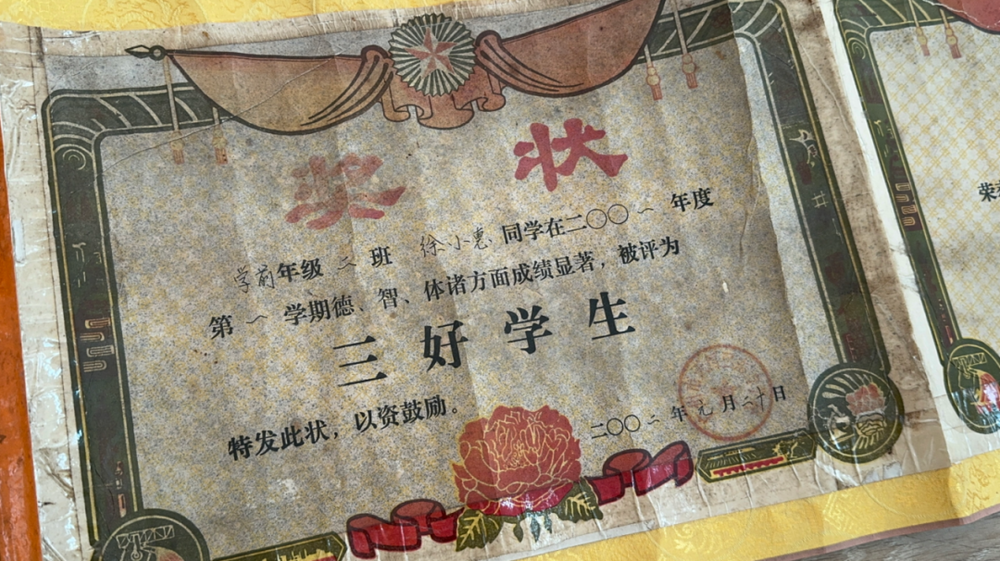 奖状
学前年级二班 徐小惠 同学在二〇〇一年度
第一学期德、智、体诸方面成绩显著，被评为
三好学生
特发此状，以资鼓励。
二〇〇二年元月二十日
荣